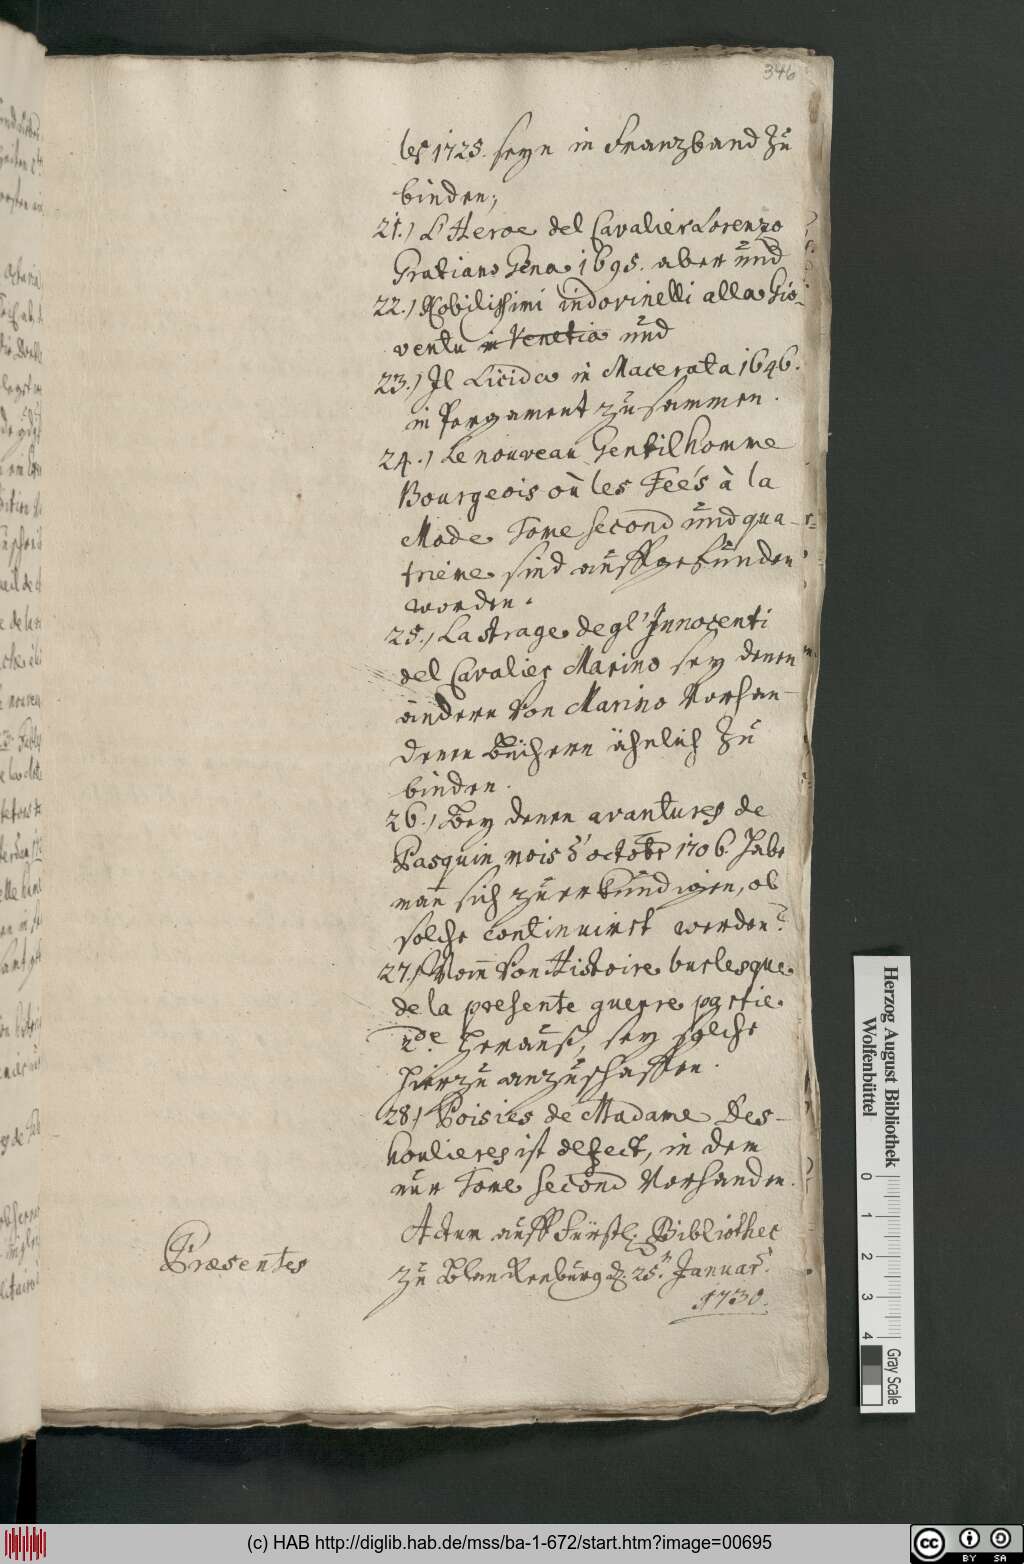 346
les 1725. seyn in Franzband zu
binden;
21.) L'Heroe del Cavalier Lorenzo
Gratiano Gena 1695. aber und
22.) Nobilissimi indovinelli alla Gio-
ventu in Venetia und
23.) Il Licida in Macerata 1646.
in Pergament zusammen.
24.) Le nouveau Gentilhomme
Bourgeois où les Feés à la
Mode Tome second und qua-
trieme sind auffgefunden
worden.
25.) La strage degl' Innocenti
del Cavalier Marino sey denen
andern von Marino Vorhan-
denen Büchern ähnlich zu
binden.
26.) Bey denen avantures de
Pasquin mois d'octobr 1706. habe
man sich zu erkundigen, ob
solche continuirt werden?
27.) Wann von Histoire burlesque
de la presente guerre partie
2de herauß, sey solche
hierzu anzuschaffen.
28.) Poisies de Madame Des-
houlieres ist defect, in dem
nur Tome second Vorhanden.
Actum auff Fürstl. Bibliothec
Præsentes
zu Blanckenburg d. 25n Januar.
1730.
Herzog August Bibliothek
Wolfenbüttel
0 1 2 3 4
Gray Scale
(c) HAB http://diglib.hab.de/mss/ba-1-672/start.htm?image=00695
cc BY SA